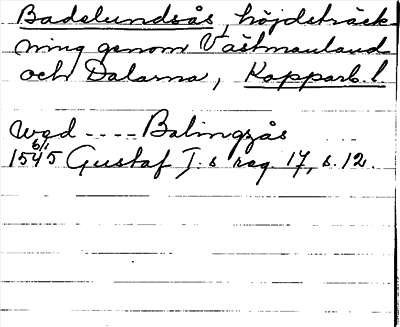 Badelundsås, höjdsträck-
ning genom Västmanland
och Dalarna, Kopparb. l.
wgd ---- Balingzås
1545 6/1 Gustaf I.s reg. 17, s. 12.